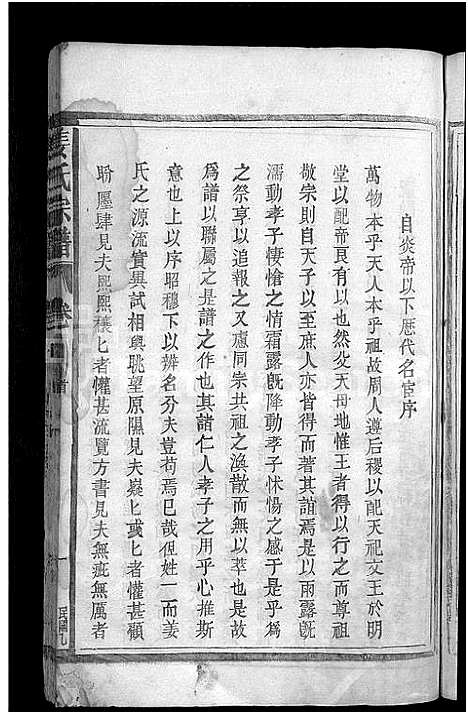 自炎帝以下歷代名宦序
萬物本乎天人本乎祖故周人遵后稷以配天祀文王於明
堂以配帝良有以也然父天母地惟王者得以行之而尊祖
敬宗則自天子以至庶人亦皆得而著其誼焉是以雨露旣
濡動孝子悽愴之情霜露旣降動孝子怵惕之感于是乎爲
之祭享以追報之又慮同宗共祖之渙散而無以萃也是故
爲譜以聯屬之是譜之作也其諸仁人孝子之用乎心推斯
意也上以序昭穆下以辨名分夫豈苟焉巳哉伹姓一而姜
氏之源流實異試相與眺望原隰見夫嶷匕彧匕者懽甚顧
盼廛肆見夫熙熙穰匕者懽甚流覽方書見夫無疵無厲者
姜氏宗譜
卷
首
一